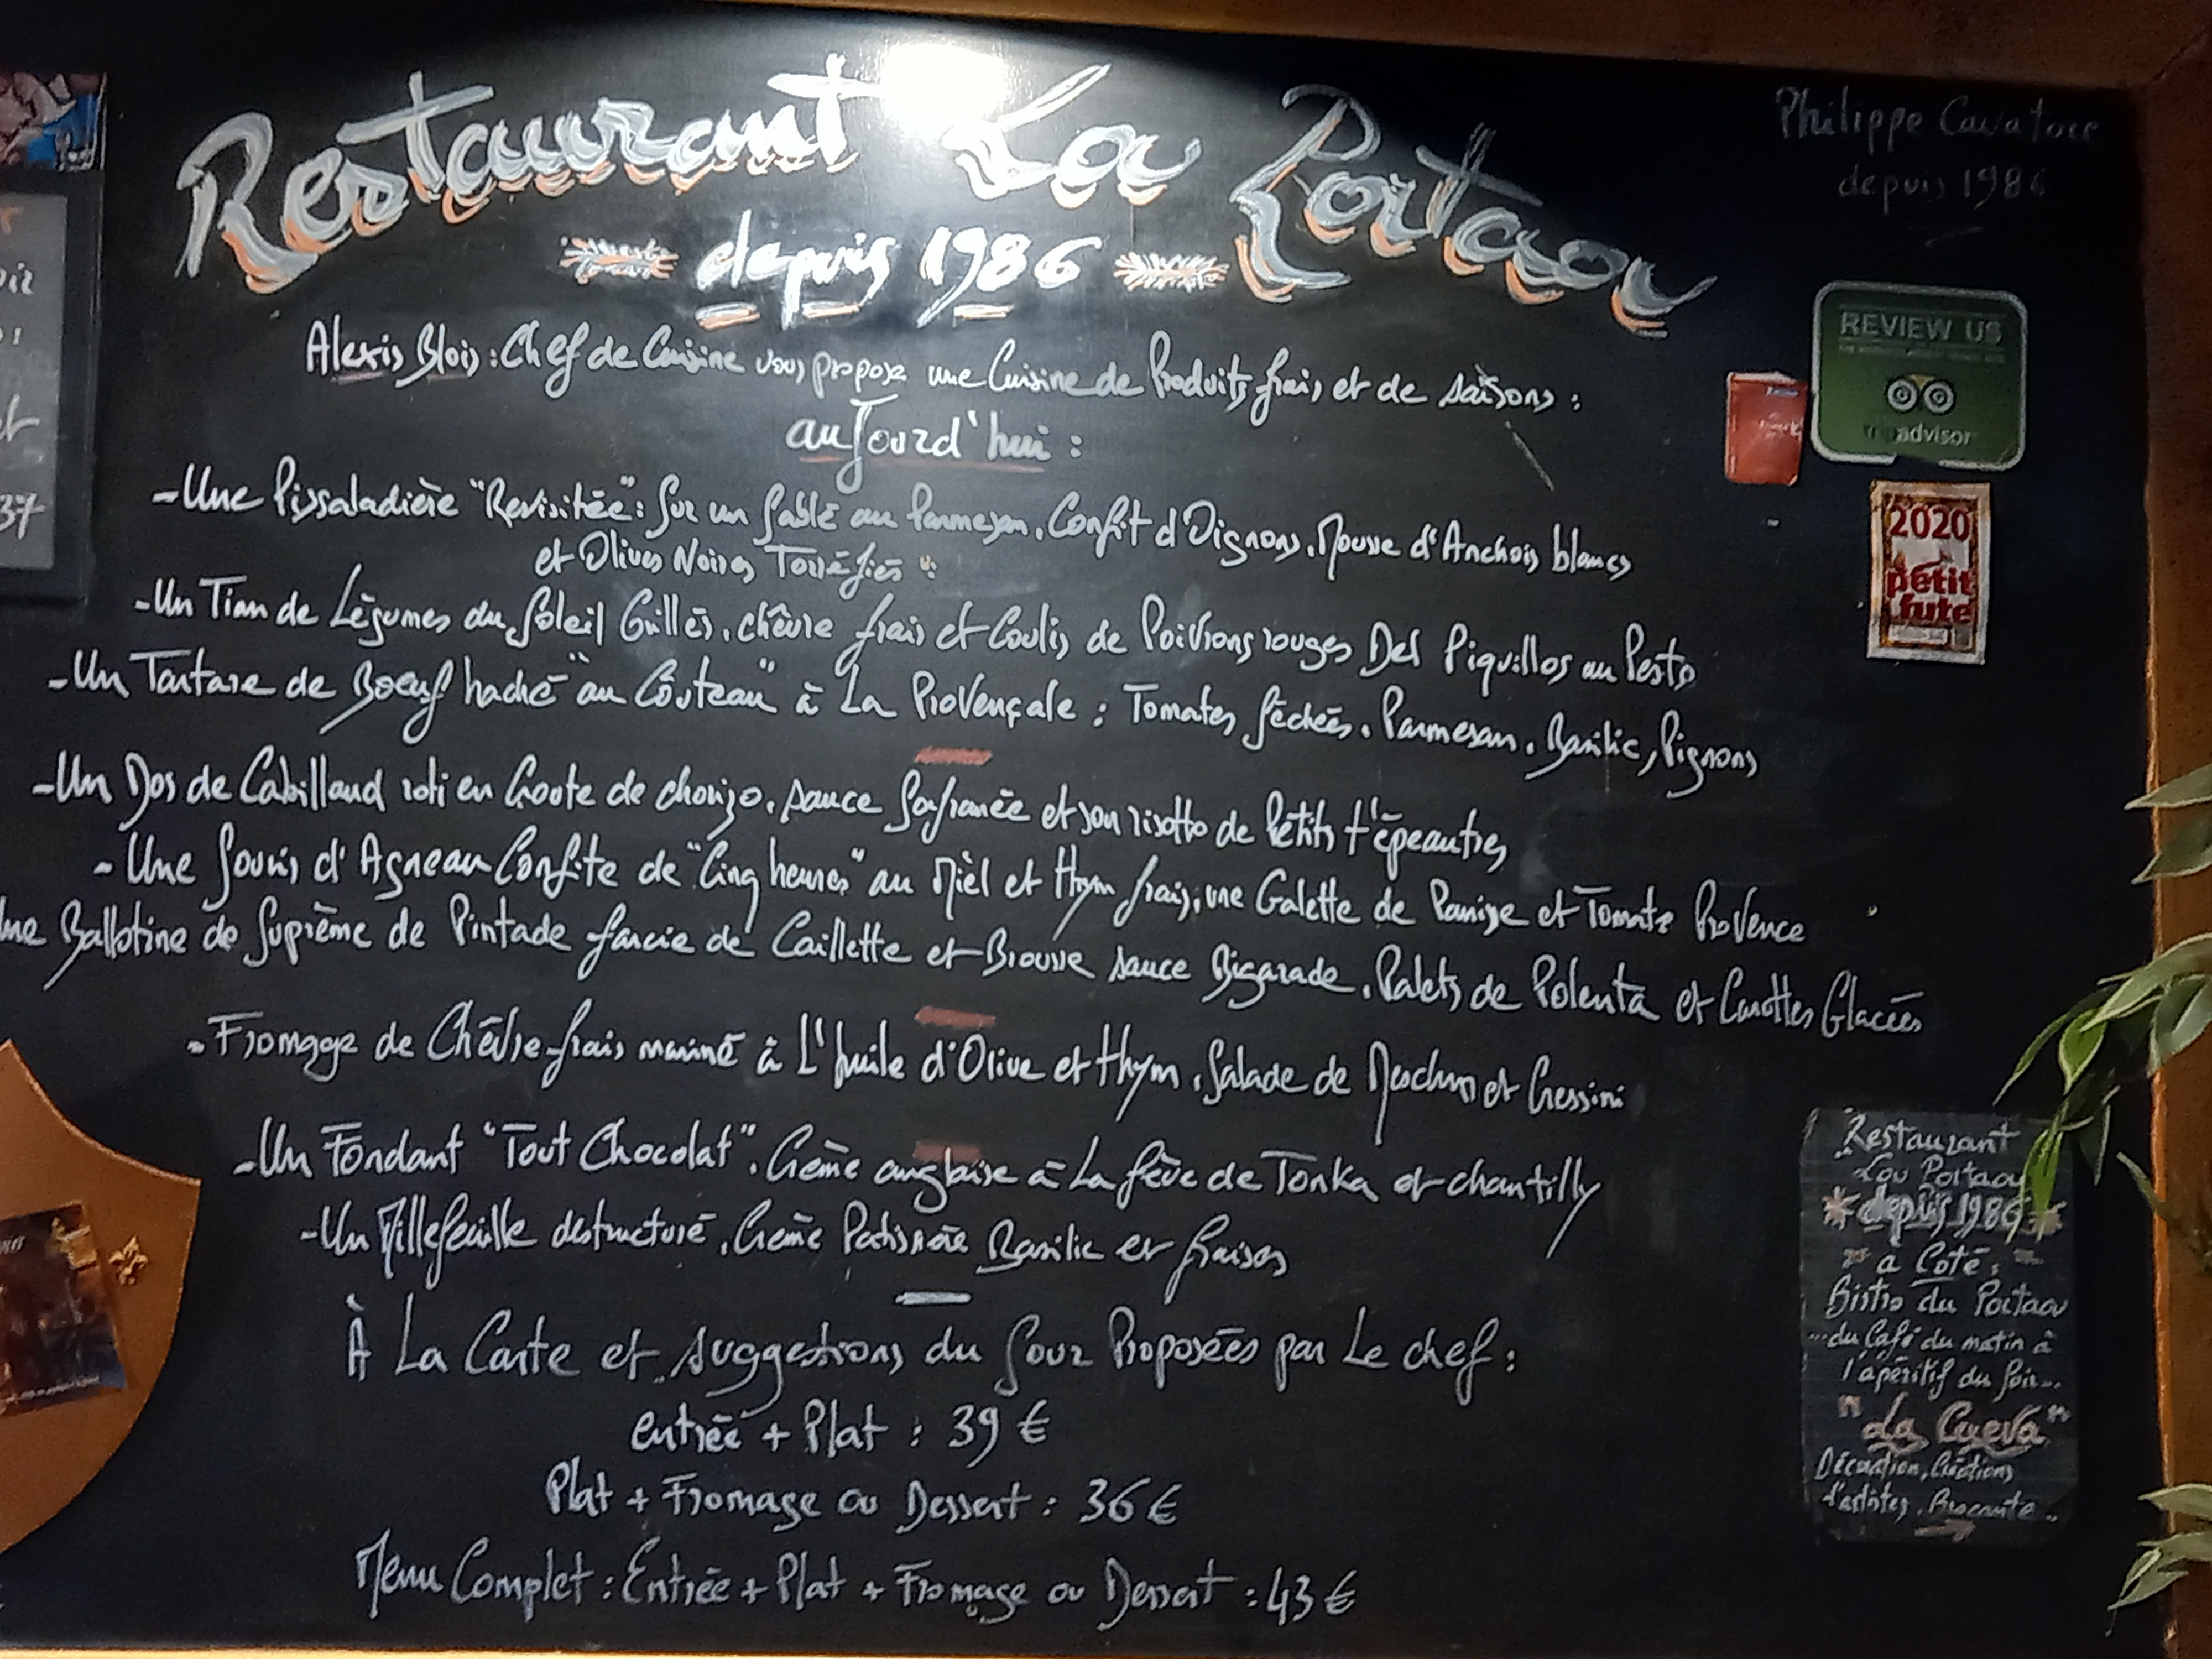 Restaurant Lou Portaou
depuis 1986
Philippe Cavatore
depuis 1986
Alexis Blois : Chef de Cuisine vous propose une Cuisine de Produits frais et de saisons :
aujourd'hui :
- Une Pissaladière "Revisitée" : Sur un Sablé au Parmesan, Confit d'Oignons, Mousse d'Anchois blancs
et Olives Noires Torréfiés
- Un Tian de Légumes du Soleil Grillés, chèvre frais et Coulis de Poivrons rouges Del Piquillos au Pesto
- Un Tartare de Boeuf haché "au Couteau" à La Provençale : Tomates Séchées, Parmesan, Basilic, Pignons
- Un Dos de Cabillaud roti en Croute de chorizo, sauce Safranée et son risotto de Petits t'épeautres
- Une Souris d'Agneau Confite de "Cinq heures" au Mièl et Thym frais, une Galette de Panize et Tomate Provence
Une Ballotine de Suprème de Pintade farcie de Caillette et Brousse sauce Bigarade, Palets de Polenta et Carottes Glacées
- Fromage de Chèvre frais mariné à L'huile d'Olive et Thym, Salade de Mesclun et Gressini
- Un Fondant "Tout Chocolat", Crème anglaise à La fève de Tonka et chantilly
- Un Millefeuille destructuré, Crème Patissière Basilic et fraises
À La Carte et Suggestions du Jour Proposées par Le chef :
entrée + Plat : 39 €
Plat + Fromage ou Dessert : 36 €
Menu Complet : Entrée + Plat + Fromage ou Dessert : 43 €
REVIEW US
tripadvisor
2020
petit
futé
Restaurant
Lou Portaou
depuis 1986
a Coté :
Bistro du Portaou
...du Café du matin à
l'apéritif du Soir...
"La Cueva"
Décoration, Créations
d'artistes, Brocante..
37